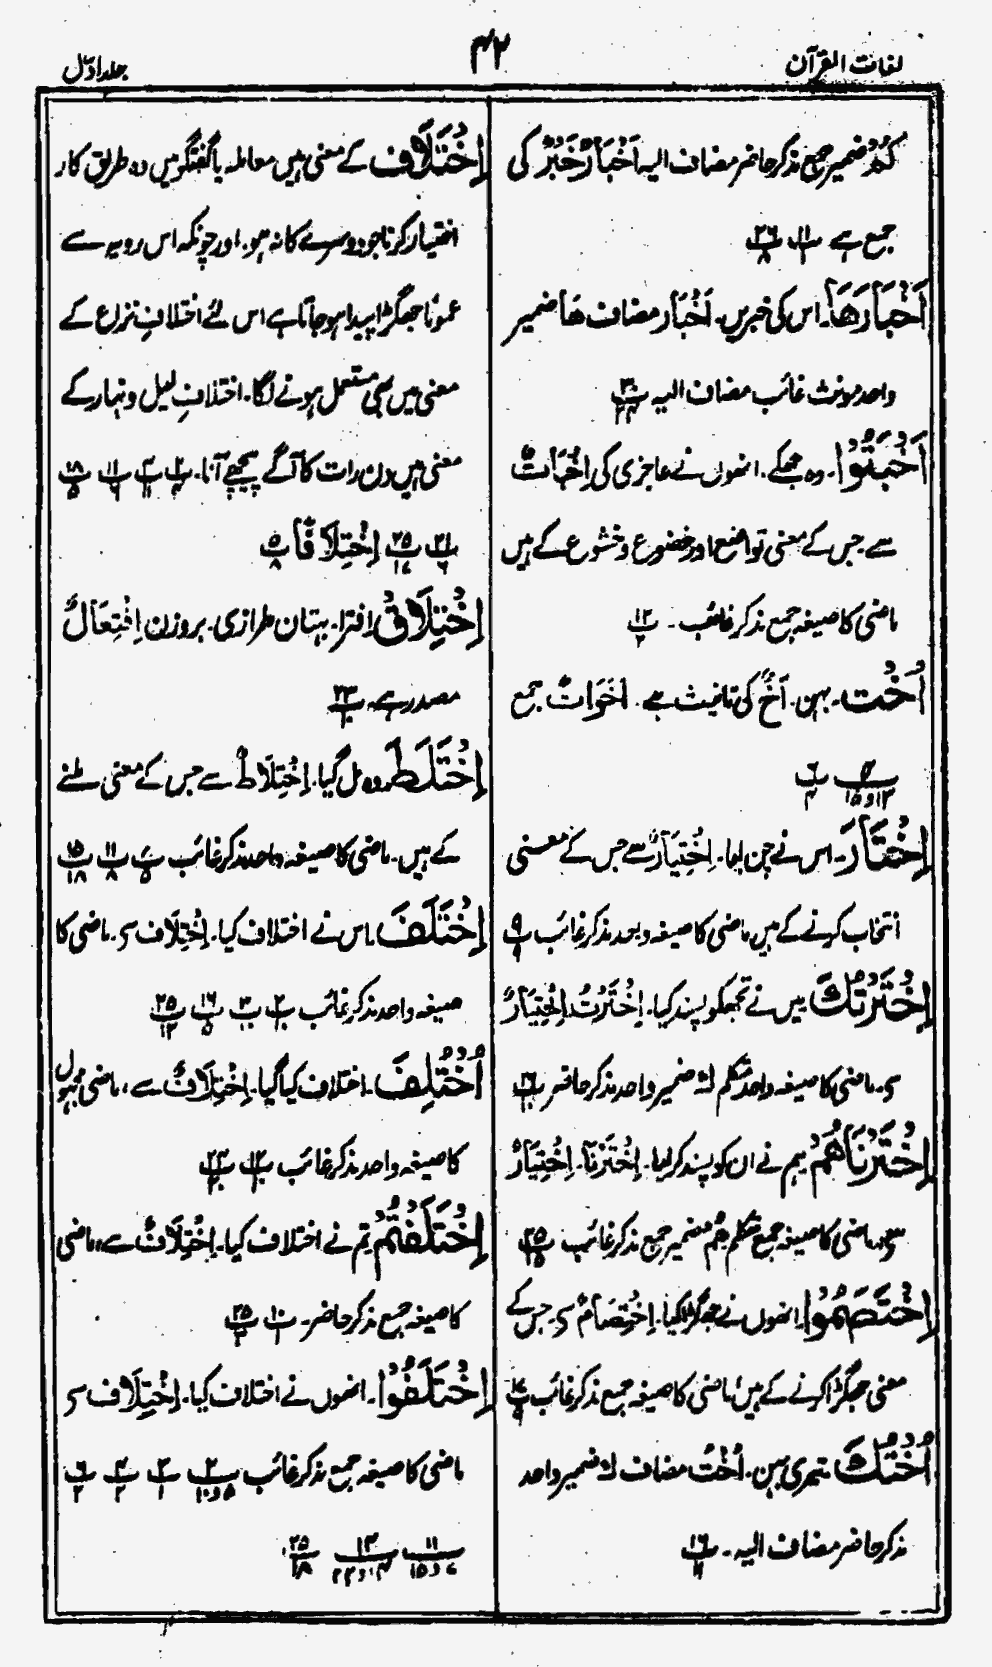 لغات القرآن
۴۲
جلد اوّل
كُمْ ضمیر جمع مذکر حاضر مضاف الیہ اَخْبَارٌ خَبَرٌ کی
جمع ہے پ ۱۱ ۱ پ ۲۶ ۸
اَخْبَارَهَا۔ اس کی خبریں۔ اَخْبَار مضاف هَا ضمیر
واحد مونث غائب مضاف الیہ پ ۳۰ ۲۴
اَخْبَتُوْا۔ وہ جھکے۔ انھوں نے عاجزی کی اِخْبَاتٌ
سے جس کے معنی تواضع اور خضوع و خشوع کے ہیں
ماضی کا صیغہ جمع مذکر غائب۔ پ ۱۲ ۲
اُخْتٌ۔ بہن۔ اَخٌ کی تانیث ہے۔ اَخَوَاتٌ جمع
پ ۴ ۱۳و۱۵ پ ۶ ۴
اِخْتَارَ۔ اس نے چن لیا۔ اِخْتِیَارٌ سے جس کے معنی
انتخاب کرنے کے ہیں ماضی کا صیغہ واحد مذکر غائب پ ۹ ۹
اِخْتَرْتُكَ میں نے تجھکو پسند کیا۔ اِخْتَرْتُ، اِخْتِیَارٌ
سے۔ ماضی کا صیغہ واحد متکلم كَ ضمیر واحد مذکر حاضر پ ۱۶ ۱۰
اِخْتَرْنَاهُمْ ہم نے ان کو پسند کرلیا۔ اِخْتَرْنَا۔ اِخْتِیَارٌ
سے۔ ماضی کا صیغہ جمع متکلم هُمْ ضمیر جمع مذکر غائب پ ۲۵ ۱۵
اِخْتَصَمُوْا۔ انھوں نے جھگڑا کیا۔ اِخْتِصَامٌ سے جس کے
معنی جھگڑا کرنے کے ہیں، ماضی کا صیغہ جمع مذکر غائب پ ۱۷ ۹
اُخْتُكَ تیری بہن۔ اُخْتُ مضاف كَ ضمیر واحد
مذکر حاضر مضاف الیہ۔ پ ۱۶ ۱۱
اِخْتَلَافِ کے معنی ہیں معاملہ یا گفتگو میں وہ طریق کار
اختیار کرنا جو دوسرے کا نہ ہو۔ اور چونکہ اس رویہ سے
عموماً جھگڑا پیدا ہو جاتا ہے اس لئے اختلافِ نزاع کے
معنی میں بھی مستعمل ہونے لگا۔ اختلافِ لیل و نہار کے
معنی ہیں دن رات کا آگے پیچھے آنا۔ پ ۲ ۴ پ ۴ ۱۱ پ ۱۱ ۶ پ ۱۸ ۵
پ ۲۱ ۶ پ ۲۵ ۱۷ اِخْتِلَافًا پ ۵ ۸
اِخْتِلَاقٌ افترا۔ بہتان طرازی۔ بروزن اِفْتِعَالٌ
مصدر ہے۔ پ ۲۳ ۱۰
اِخْتَلَطَ وہ مل گیا۔ اِخْتِلَاطٌ سے جس کے معنی ملنے
کے ہیں۔ ماضی کا صیغہ واحد مذکر غائب پ ۸ ۵ پ ۱۱ ۸ پ ۱۵ ۱۸
اِخْتَلَفَ اس نے اختلاف کیا۔ اِخْتِلَاف سے۔ ماضی کا
صیغہ واحد مذکر غائب پ ۲ ۱۰ پ ۳ ۱۰ پ ۱۶ ۵ پ ۲۵ ۱۲
اُخْتُلِفَ۔ اختلاف کیا گیا۔ اِخْتِلَافٌ سے، ماضی مجہول
کا صیغہ واحد مذکر غائب پ ۱۲ ۱۰ پ ۲۴ ۲۰
اِخْتَلَفْتُمْ تم نے اختلاف کیا۔ اِخْتِلَافٌ سے، ماضی
کا صیغہ جمع مذکر حاضر۔ پ ۱۰ ۱ پ ۲۵ ۳
اِخْتَلَفُوْا۔ انھوں نے اختلاف کیا۔ اِخْتِلَاف سے
ماضی کا صیغہ جمع مذکر غائب پ ۲ ۵و۱۰ پ ۳ ۱ پ ۴ ۲ پ ۶ ۲
پ ۱۱ ۷و۱۵ پ ۱۴ ۱۳و۲۲ پ ۲۵ ۱۸